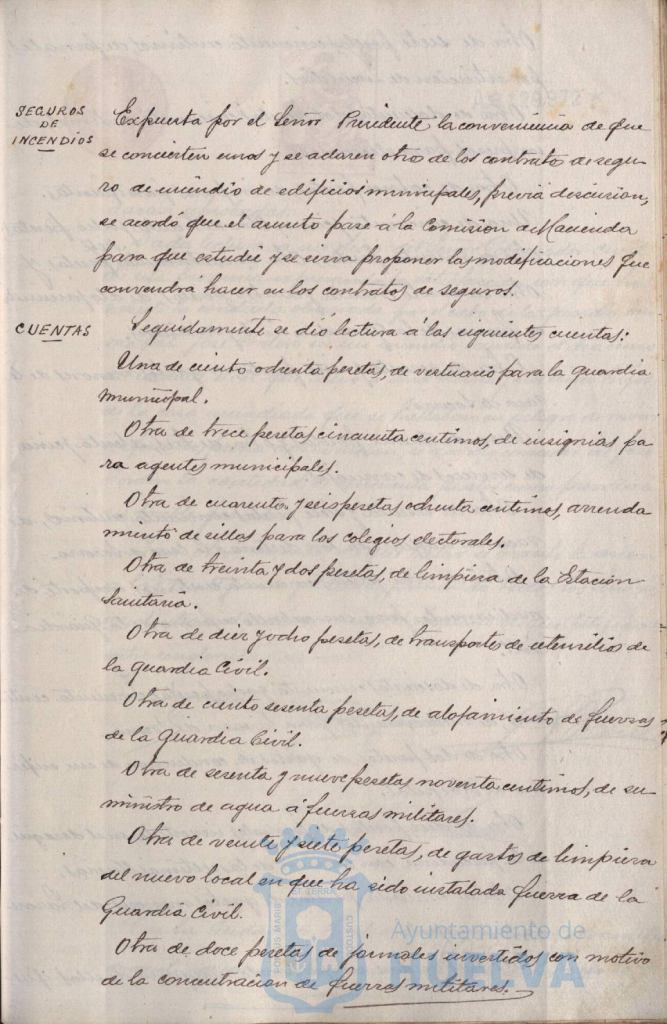 SEGUROS
DE
INCENDIOS
Expuesta por el Señor Presidente la conveniencia de que
se concierten unos y se aclaren otro de los contratos de segu-
ro de incendio de edificios municipales, previa discusion,
se acordó que el asunto pase á la Comision de Hacienda
para que estudie y se sirva proponer las modificaciones que
convendrá hacer en los contratos de seguros.
CUENTAS
Seguidamente se dió lectura á las siguientes cuentas:
Una de ciento ochenta pesetas, de vestuario para la guardia
municipal.
Otra de trece pesetas cincuenta centimos, de insignias pa-
ra agentes municipales.
Otra de cuarenta y seis pesetas ochenta centimos, arrenda
miento de sillas para los colegios electorales.
Otra de treinta y dos pesetas, de limpieza de la Estación
Sanitaria.
Otra de diez y ocho pesetas, de transportes de utensilios de
la guardia Civil.
Otra de ciento sesenta pesetas, de alojamiento de fuerzas
de la Guardia Civil.
Otra de sesenta y nueve pesetas noventa centimos, de su-
ministro de agua á fuerzas militares.
Otra de veinte y siete pesetas, de gastos de limpieza
del nuevo local en que ha sido instalada fuerza de la
Guardia Civil.
Otra de doce pesetas de jornales invertidos con motivo
de la concentracion de fuerzas militares.
Ayuntamiento de
HUELVA